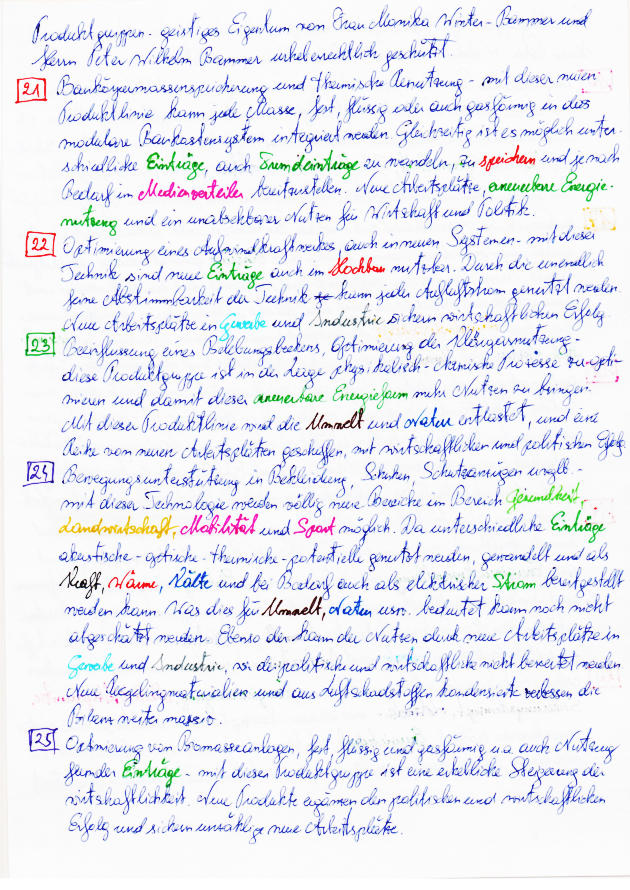 Produktgruppen - geistiges Eigentum von Frau Monika Winter-Bammer und
Herrn Peter Wilhelm Bammer urheberrechtlich geschützt.
21 Baukörpermassenspeicherung und thermische Benutzung - mit dieser neuen
Produktlinie kann jede Masse, fest, flüssig oder auch gasförmig in das
modulare Baukastensystem integriert werden. Gleichzeitig ist es möglich unter-
schiedliche Einträge, auch Fremdeinträge zu wandeln, zu speichern und je nach
Bedarf im Medienverteiler bereitzustellen. Neue Arbeitsplätze, erneuerbare Energie-
nutzung und ein unabsehbarer Nutzen für Wirtschaft und Politik.
22 Optimierung eines Aufwindkraftwerkes, auch in neuen Systemen - mit dieser
Technik sind neue Einträge auch im Hochbau nutzbar. Durch die unendlich
feine Abstimmbarkeit der Technik kann jeder Aufluftstrom genutzt werden.
Neue Arbeitsplätze in Gewerbe und Industrie sichern wirtschaftlichen Erfolg.
23 Beeinflussung eines Belebungsbeckens, Optimierung der Klärgasnutzung -
diese Produktgruppe ist in der Lage physikalisch-chemische Prozesse zu opti-
mieren und damit dieser erneuerbare Energieform mehr Nutzen zu bringen.
Mit dieser Produktlinie wird die Umwelt und Natur entlastet, und eine
Reihe von neuen Arbeitsplätzen geschaffen, mit wirtschaftlichen und politischen Erfolg.
24 Bewegungsunterstützung in Bekleidung, Schuhen, Schutzanzügen usw. -
mit dieser Technologie werden völlig neue Bereiche im Bereich Gesundheit,
Landwirtschaft, Mobilität und Sport möglich. Da unterschiedliche Einträge
akustische - optische - thermische - potentielle genutzt werden, gewandelt und als
Kraft, Wärme, Kälte und bei Bedarf auch als elektrischer Strom bereitgestellt
werden kann. Was dies für Umwelt, Natur usw. bedeutet kann noch nicht
abgeschätzt werden. Ebenso der kann der Nutzen durch neue Arbeitsplätze in
Gewerbe und Industrie, wie der politische und wirtschaftliche nicht bewertet werden
Neue Recyclingmaterialien und aus Luftschadstoffen kondensierte verbessern die
Bilanz weiter massiv.
25 Optimierung von Biomasseanlagen, fest, flüssig und gasförmig u.a. auch Nutzung
fremder Einträge - mit dieser Produktgruppe ist eine erhebliche Steigerung der
Wirtschaftlichkeit. Neue Produkte ergänzen den politischen und wirtschaftlichen
Erfolg und sichern unzählige neue Arbeitsplätze.